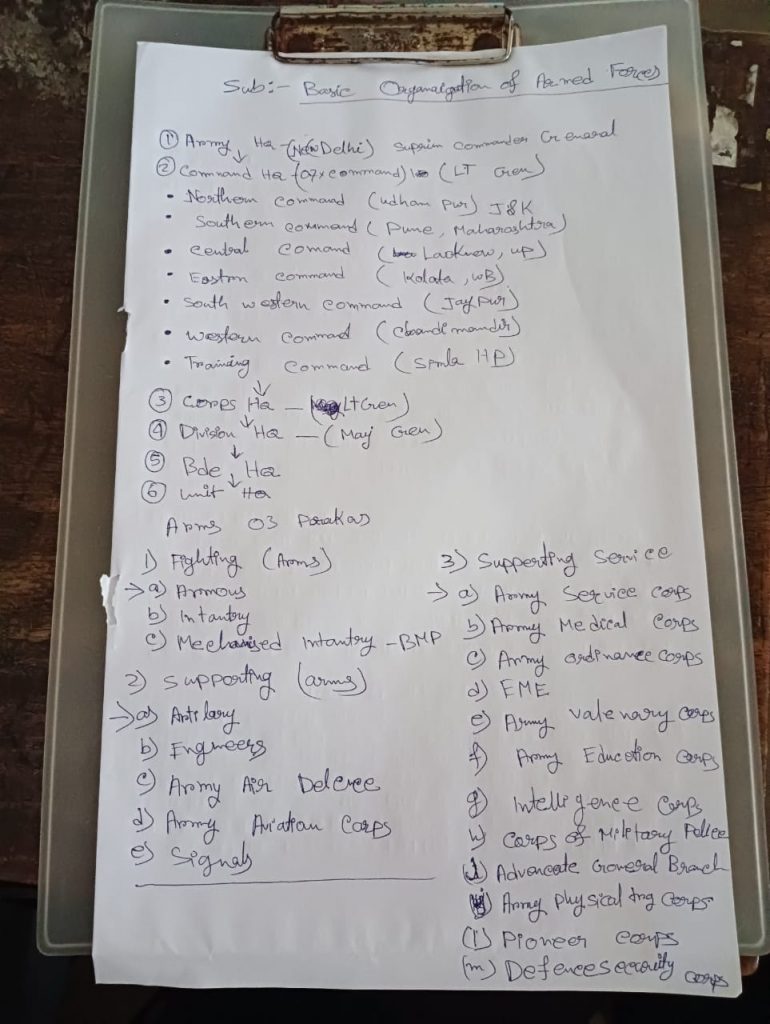 Sub:- Basic Organaigation of Armed Forces
① Army HQ - (New Delhi) Suprim commander General
② Command HQ (07x command) (LT Gen)
• Northern command (udham pur) J&K
• Southern command (Pune, Maharashtra)
• Central comand (Lacknew, UP)
• Eastrn command (Kolata, WB)
• South western command (Jaypur)
• Western command (Chandi mandir)
• Training command (Simla HP)
③ Corps HQ - (LT Gen)
④ Division HQ - (Maj Gen)
⑤ Bde HQ
⑥ unit HQ
Arms 03 Parakas
1) Fighting (Arms)
→ a) Armous
b) Intantry
c) Mechanised Intantry - BMP
2) Supporting (arms)
→ a) Antilary
b) Engineers
c) Army Air Defence
d) Army Aviation Corps
e) Signals
3) Supporting Service
→ a) Army Service Corps
b) Army Medical Corps
c) Army ordinance corps
d) EME
e) Army vatenary corps
f) Army Education Corps
g) Intelligence Corps
h) Corps of Miletary Police
Advancate General Branch
Army physical tng Corps
(l) Pioneer corps
(m) Defence security corps